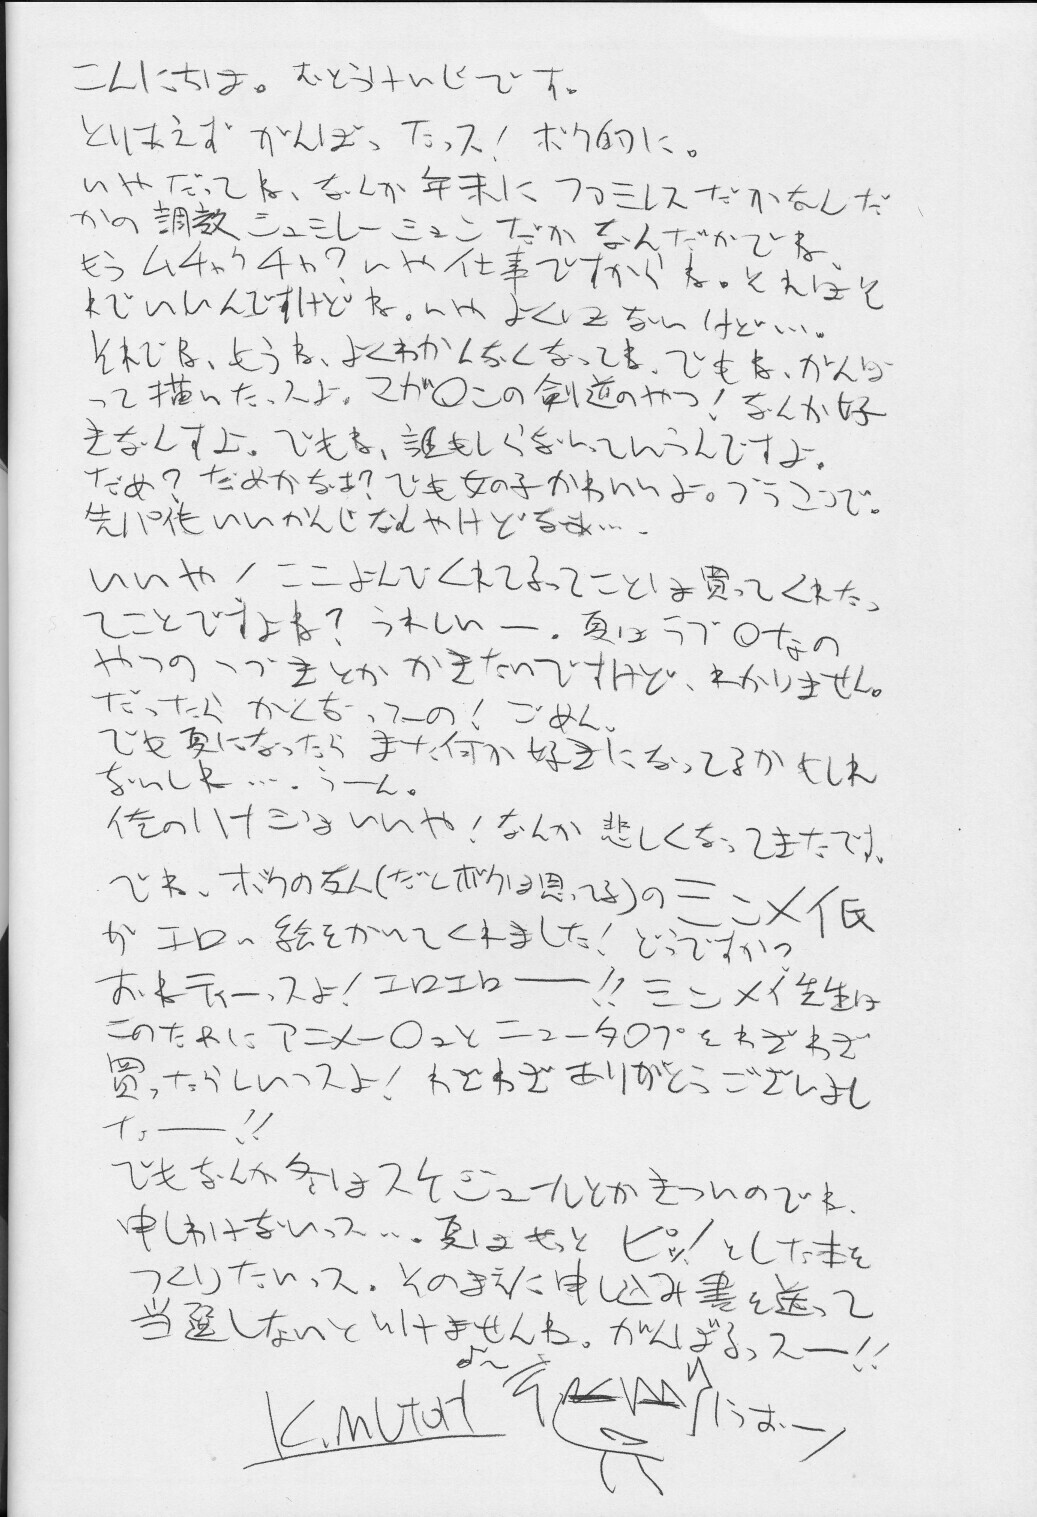 こんにちは。むとうけいじです。
とりあえずがんばったっス!ボク的に。
いやだってね、なんか年末にファミレスだかなんだ
かの調教シュミレーションだかなんだかでね、
もうムチャクチャ?いや仕事ですからね。それはそ
れでいいんですけどね。いやよくはないけど…。
それでね、もうね、よくわかんなくなってね、でもね、がんば
って描いたっスよ。マガ〇この剣道のやつ!なんか好
きなんすよ。でもね、誰もしらないっていうんですよ。
だめ?だめかなぁ?でも女の子かわいいよ。ブラこつで。
先パイもいいかんじなんやけどなぁ…。
いいや!ここよんでくれてるってことは買ってくれたっ
てことですよね?うれしいー。夏はラブ〇なの
やつのつづきとかかきたいですけど、わかりません。
だったらかくなってーの!ごめん。
でも夏になったらまた何か好きになってるかもしれ
ないしね…。うーん。
俺のハナシはいいや!なんか悲しくなってきたです。
でね、ボクの友人(だとボクは思ってる)のミンメイ氏
がエロい絵をかいてくれました!どうですかっ
おねティーっスよ!エロエロー!!ミンメイ先生は
このためにアニメー〇ュとニュータ〇プをわざわざ
買ったらしいっスよ!わざわざありがとうございまし
たー!!
でもなんか冬はスケジュールとかきついのでね、
申しわけないっス…。夏はもっとピシッ!とした本を
つくりたいっス。そのまえに申し込み書を送って
当選しないといけませんね。がんばるっスー!!
K.MUTOH
うおー